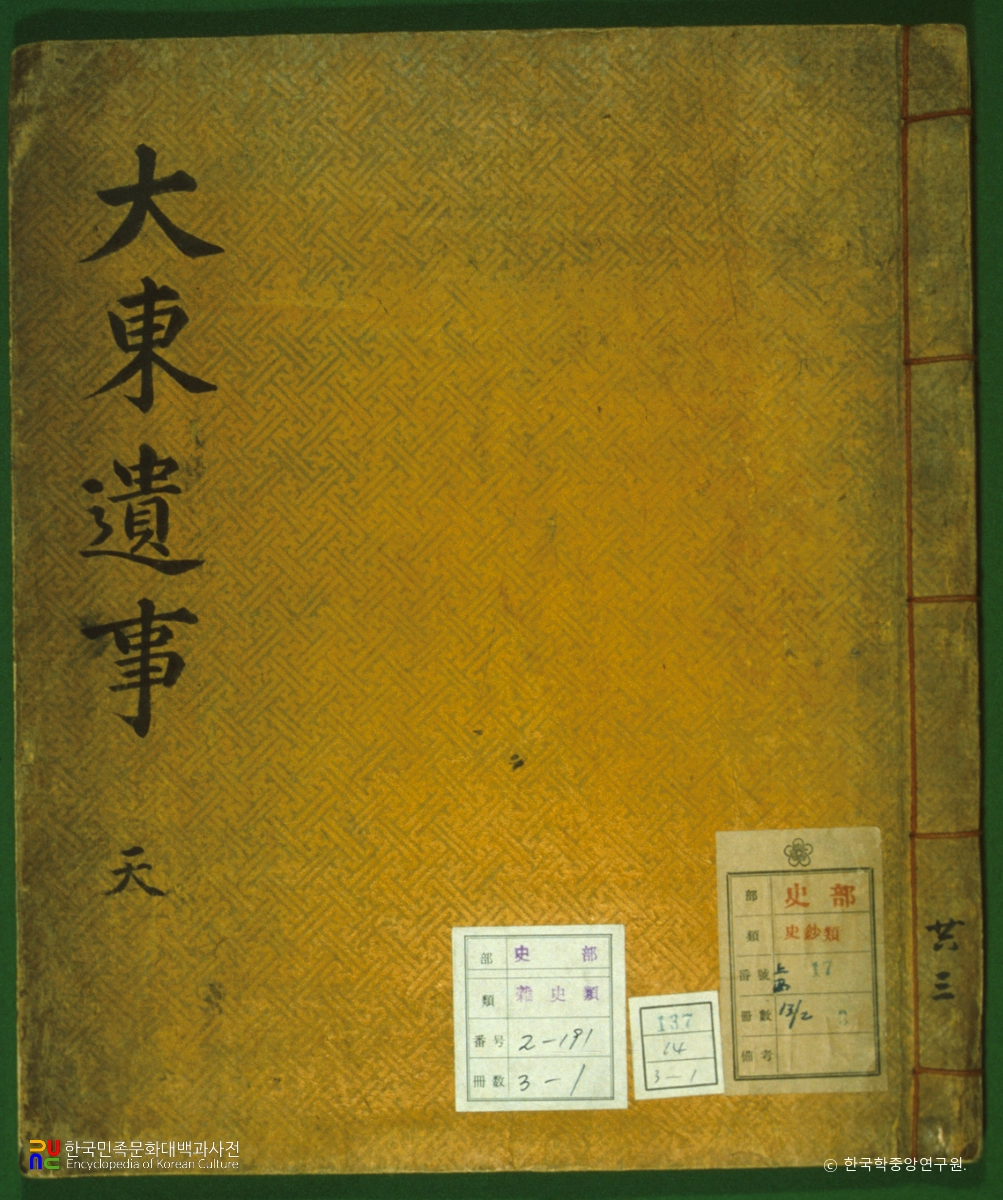 大東遺事
天
共三
部 史部
類 雜史類
番号 2-191
冊数 3-1
137
14
3-1
部 史部
類 史鈔類
番號 17
冊數 13/2 3
備考
한국민족문화대백과사전
Encyclopedia of Korean Culture
© 한국학중앙연구원.